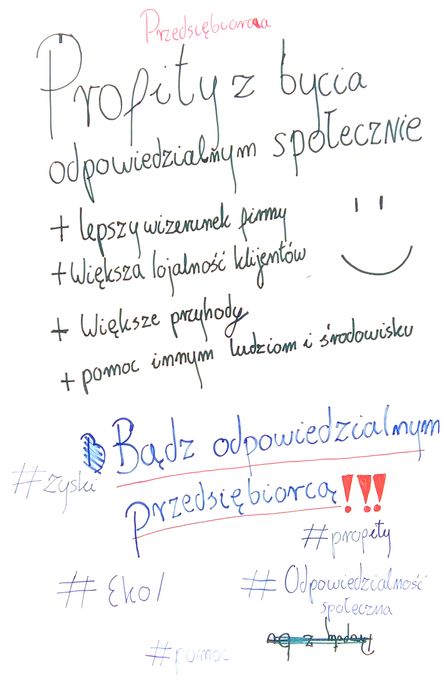 Przedsiębiorca
Profity z bycia
odpowiedzialnym społecznie
+ lepszy wizerunek firmy
+ Większa lojalność klijentów
+ Większe przyhody
+ pomoc innym ludziom i środowisku
Bądz odpowiedzialnym
#zyski
przedsiębiorcą!!!
#profity
#Eko!
#Odpowiedzialność
społeczna
#pomoc